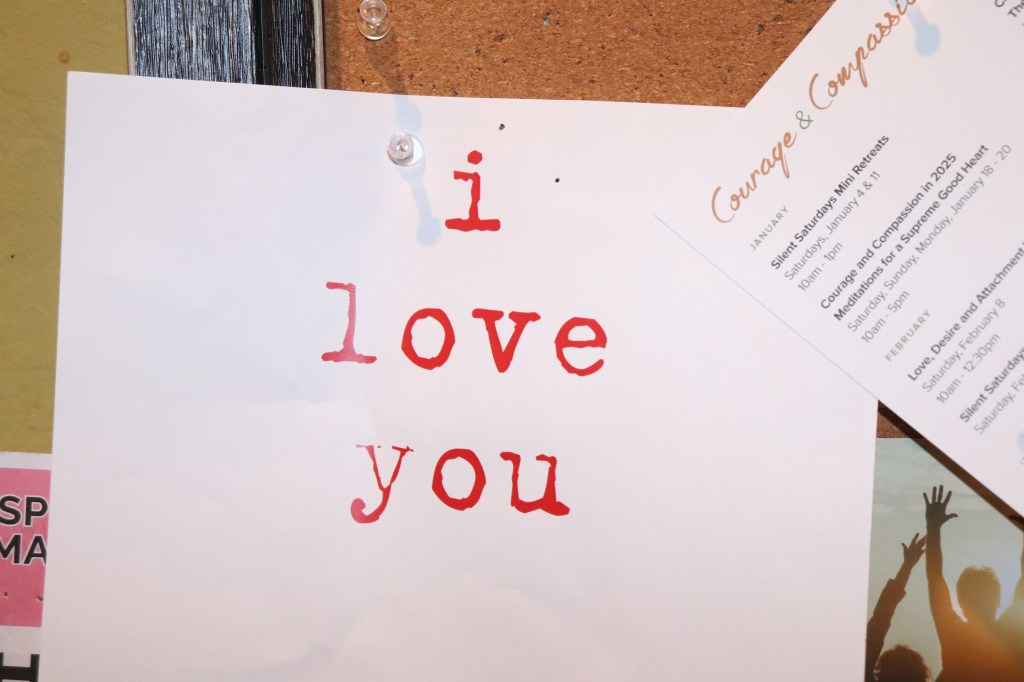 i
love
you
Courage & Compassion
JANUARY
Silent Saturdays Mini Retreats
Saturdays, January 4 & 11
10am - 1pm
Courage and Compassion in 2025
Meditations for a Supreme Good Heart
Saturday, Sunday, Monday, January 18 - 20
10am - 5pm
FEBRUARY
Love, Desire and Attachment
Saturday, February 8
10am - 12:30pm
Silent Saturday
Saturday,
SP
MA
H